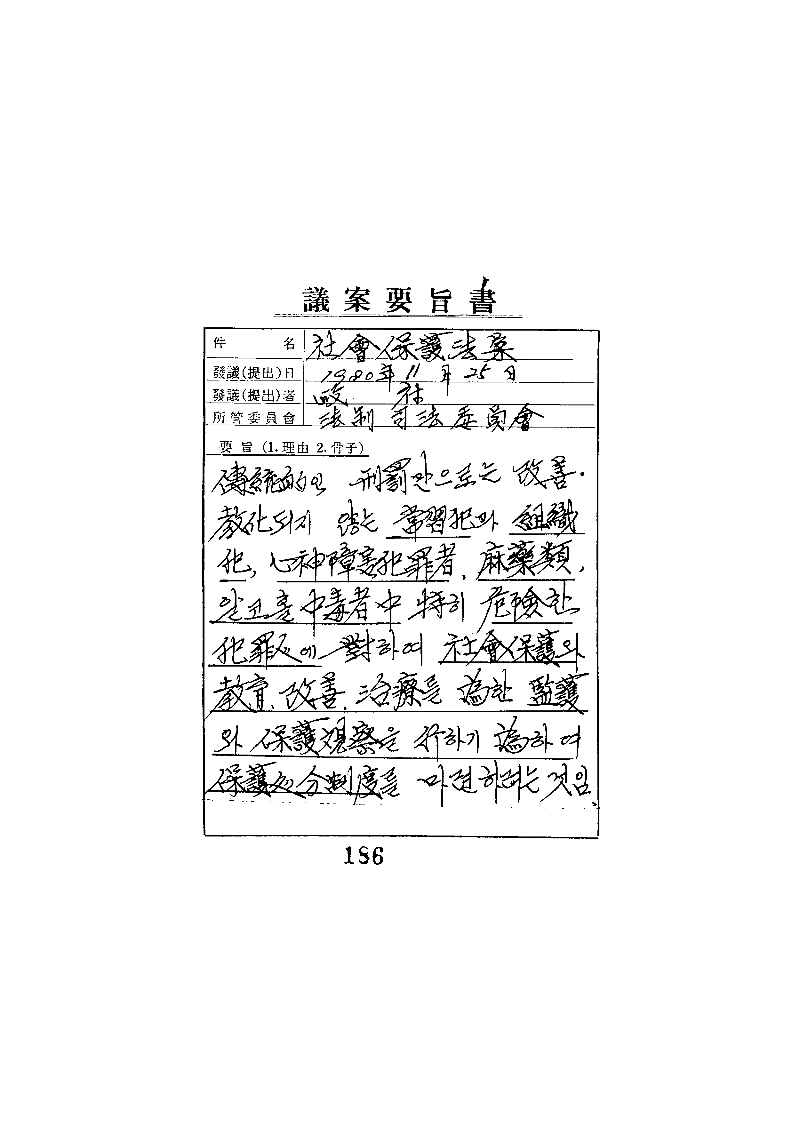 議案要旨書
件 名 社會保護法案
發議(提出)日 1980年 11月 25日
發議(提出)者 政 府
所管委員會 法制司法委員會
要旨 (1.理由 2.骨子)
傳統的인 刑罰만으로는 改善·
敎化되지 않는 常習犯과 組織
犯, 心神障害犯罪者, 麻藥類,
알코홀 中毒者中 特히 危險한
犯罪人에 對하여 社會保護와
敎育, 改善, 治療를 爲한 監護
와 保護觀察을 行하기 爲하여
保護處分制度를 마련하려는 것임.
186